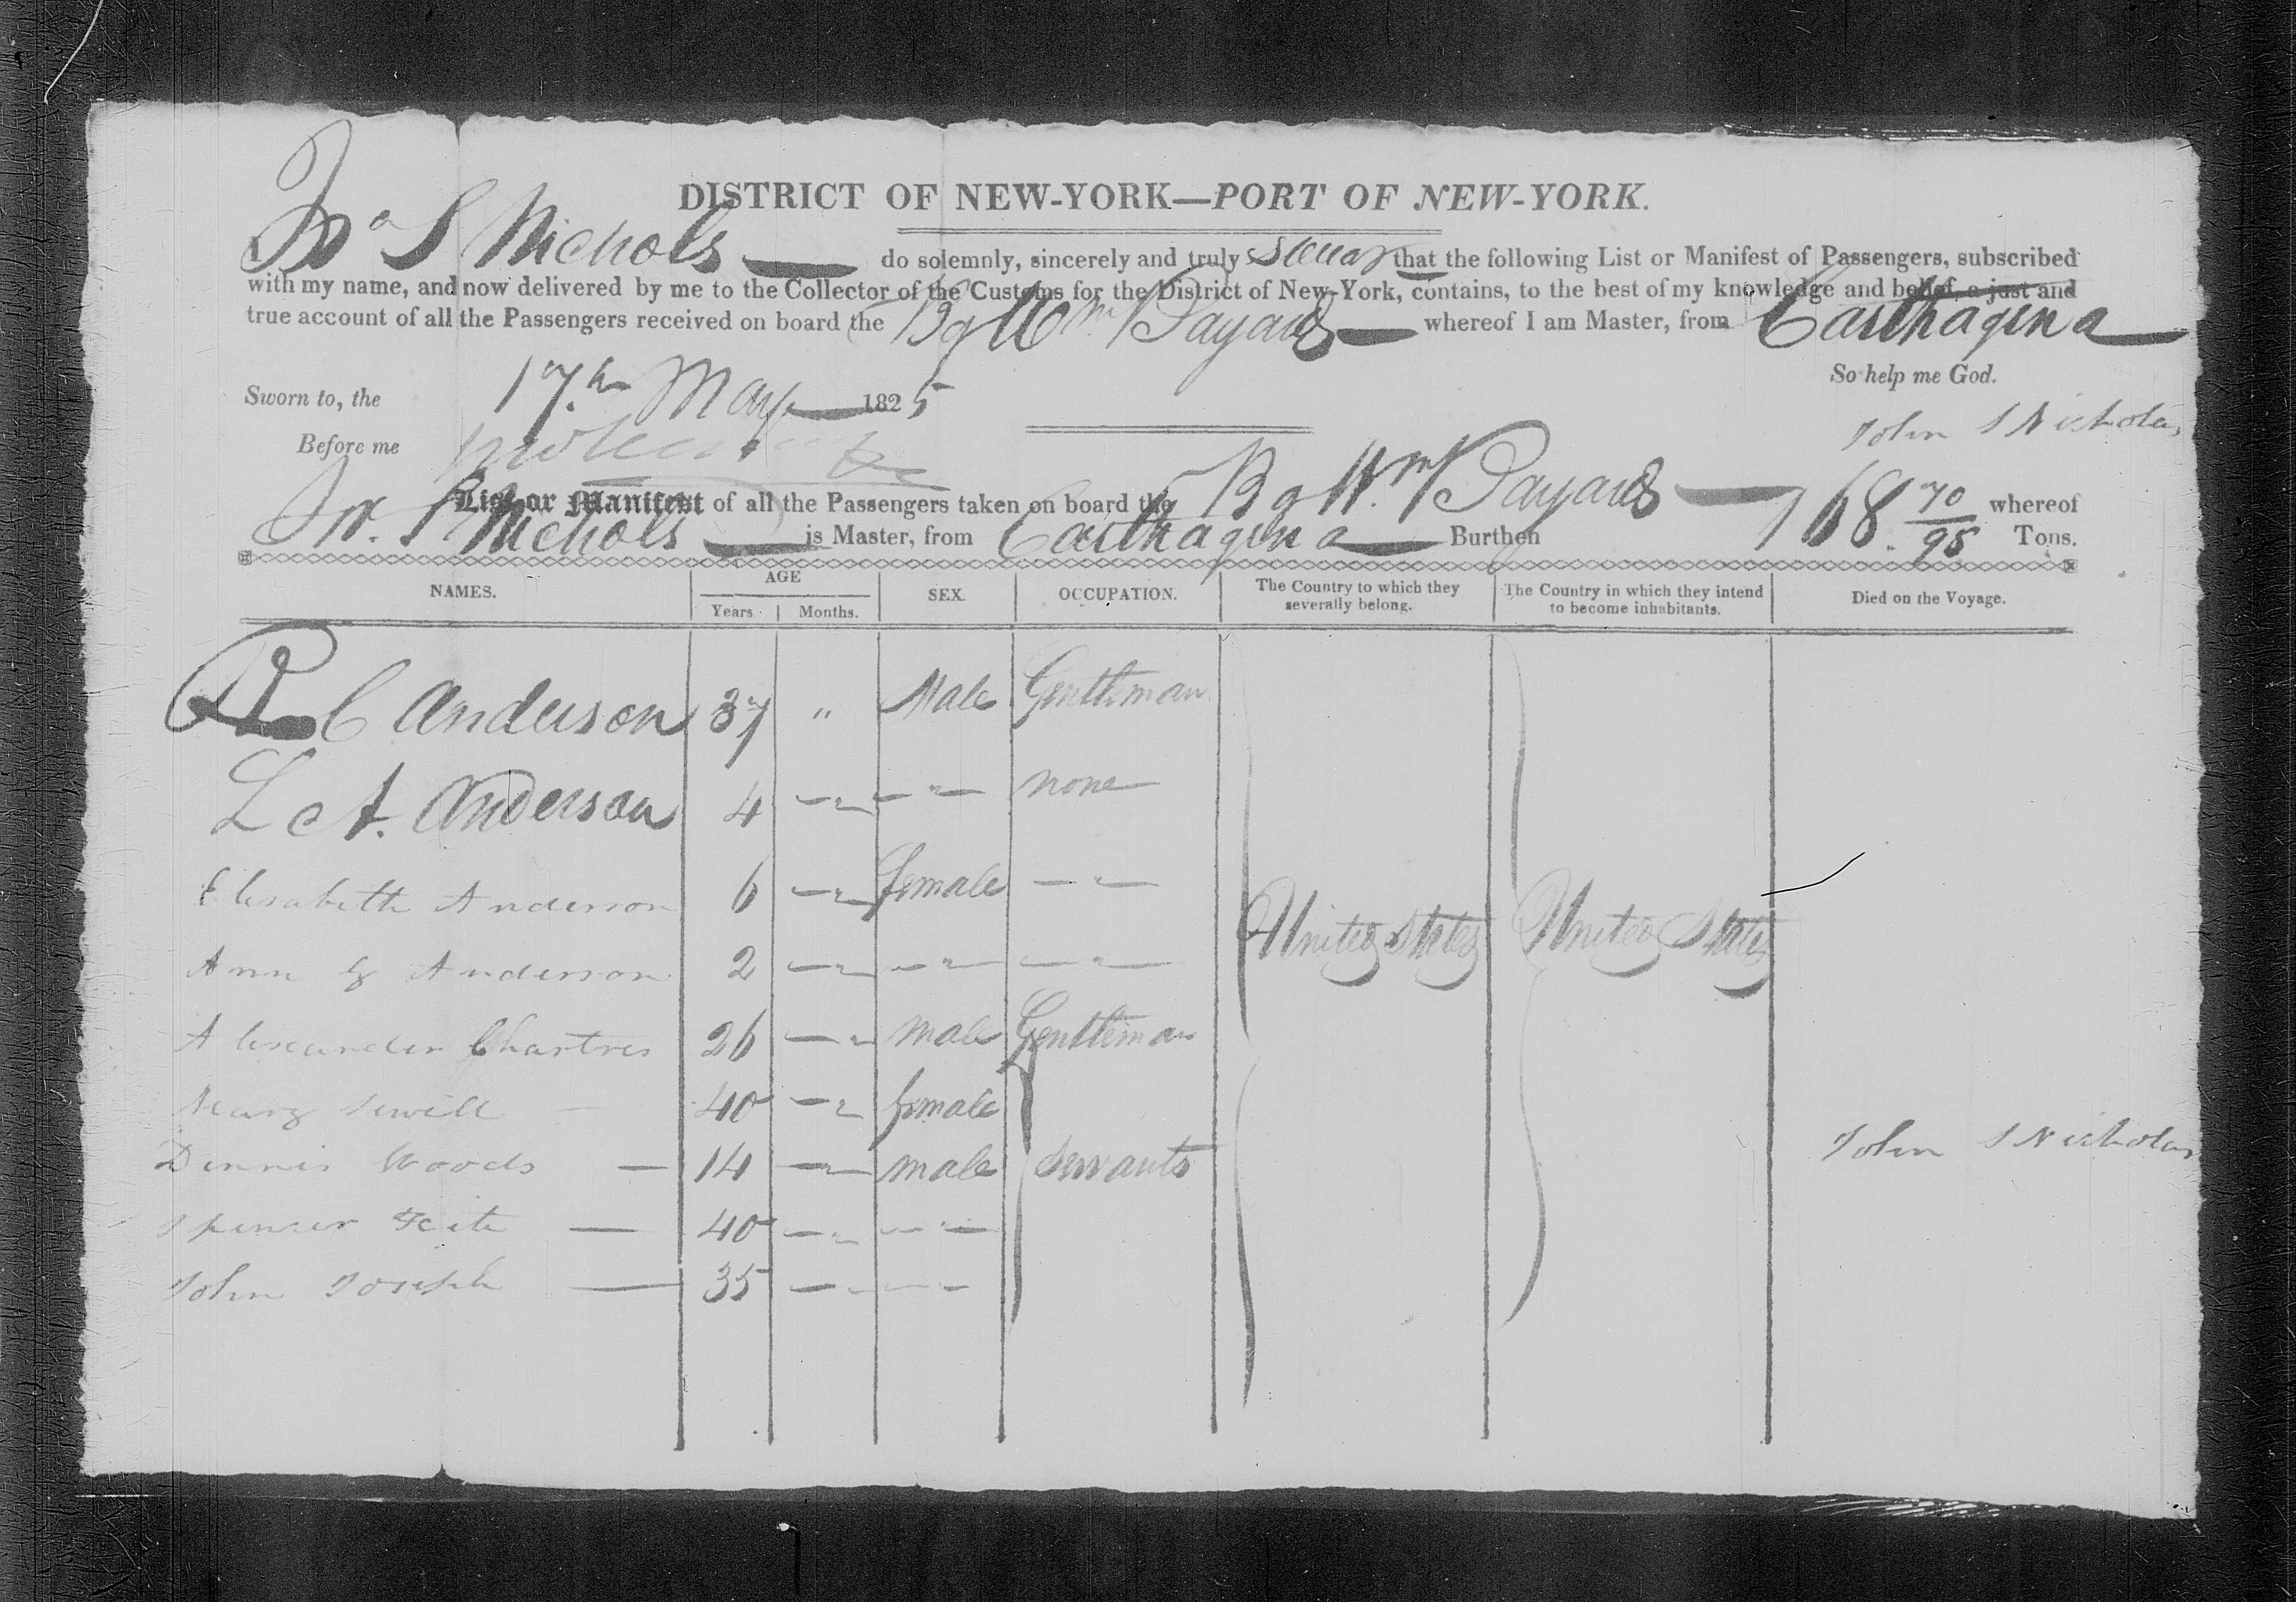 DISTRICT OF NEW-YORK—PORT OF NEW-YORK.
I, Jno S Nichols do solemnly, sincerely and truly swear that the following List or Manifest of Passengers, subscribed
with my name, and now delivered by me to the Collector of the Customs for the District of New-York, contains, to the best of my knowledge and belief, a just and
true account of all the Passengers received on board the Bg Wm Bayard whereof I am Master, from Carthagena
So help me God.
Sworn to, the 17th May 1825
John S Nicholas
Before me
List or Manifest of all the Passengers taken on board the Bg Wm Bayard whereof
Jno. S Nichols is Master, from Carthagena Burthen 168 70/95 Tons.
NAMES. AGE Years Months. SEX. OCCUPATION. The Country to which they severally belong. The Country in which they intend to become inhabitants. Died on the Voyage.
R C Anderson 37 " Male Gentleman
L A. Anderson 4 " " none
Elisabeth Anderson 6 " female "
Ann G Anderson 2 " " "
United States United States
Alexander Chartres 26 " male Gentleman
Mary Sewill 40 " female
Dennis Woods 14 " male Servants
John S Nicholas
Spencer 40 " "
John Joseph 35 " "